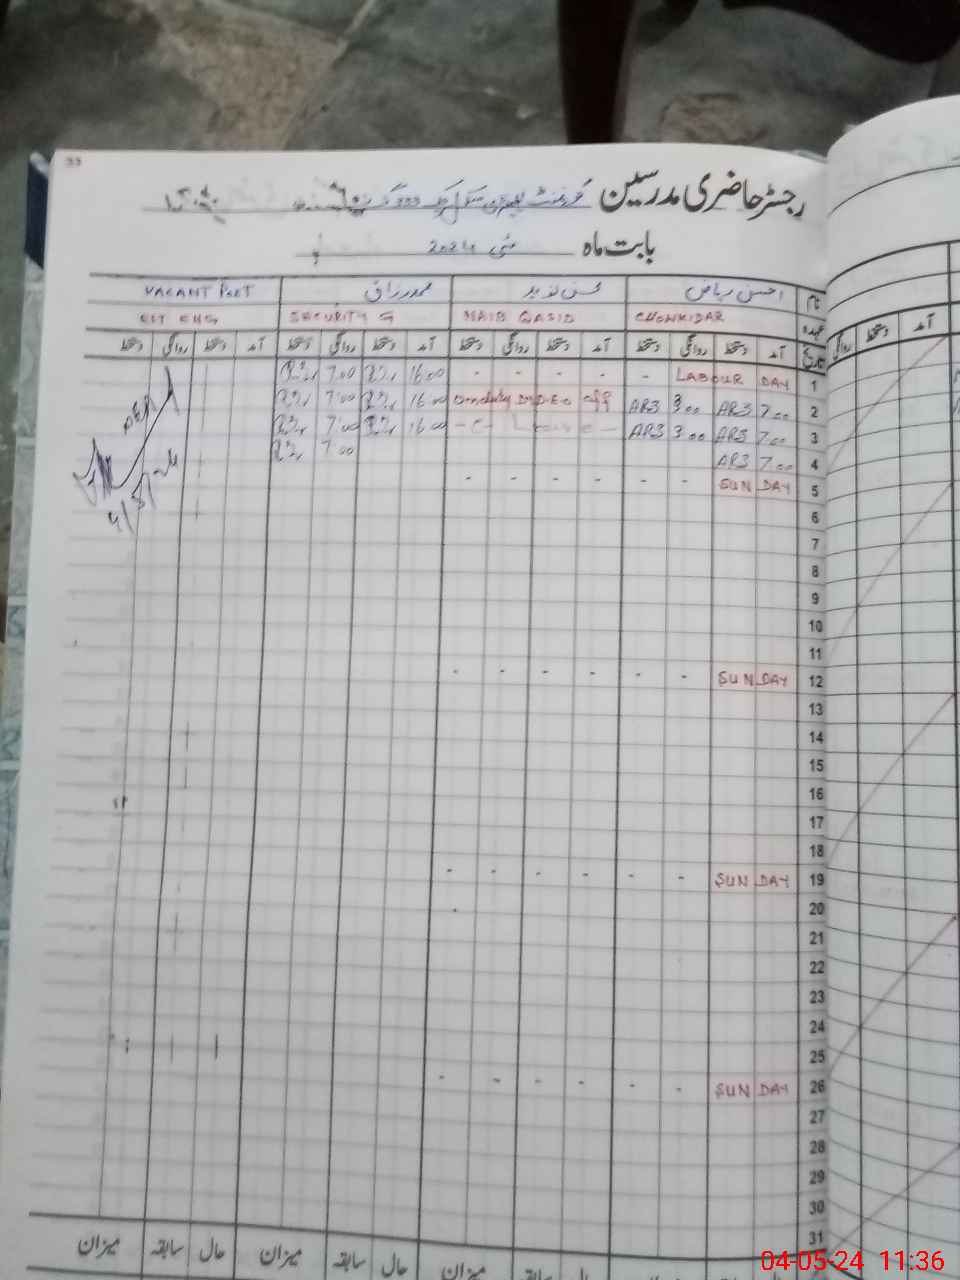 33
رجسٹر حاضری مدرسین گورنمنٹ
بابت ماہ مئی 2024
نام احسن ریاض محسن نذیر محمد رزاق VACANT POST
عہدہ CHOWKIDAR NAIB QASID SECURITY G EST ENG
تاریخ آمد دستخط روانگی دستخط آمد دستخط روانگی دستخط آمد دستخط روانگی دستخط آمد دستخط روانگی دستخط
آمد دستخط روانگی
1 LABOUR DAY - - - - - 16:00 7:00
2 7:00 ARS 3:00 ARS On duty DEO off 16:00 7:00
3 7:00 ARS 3:00 ARS - C - Leave - 16:00 7:00
4 7:00 ARS 7:00
5 SUN DAY - - - - - -
6
7
8
9
10
11
12 SUN DAY - - - - - -
13
14
15
16
17
18
19 SUN DAY - - - - - -
20
21
22
23
24
25
26 SUN DAY - - - - - -
27
28
29
30
31
حال سابقہ میزان حال سابقہ میزان حال سابقہ میزان
04-05-24 11:36